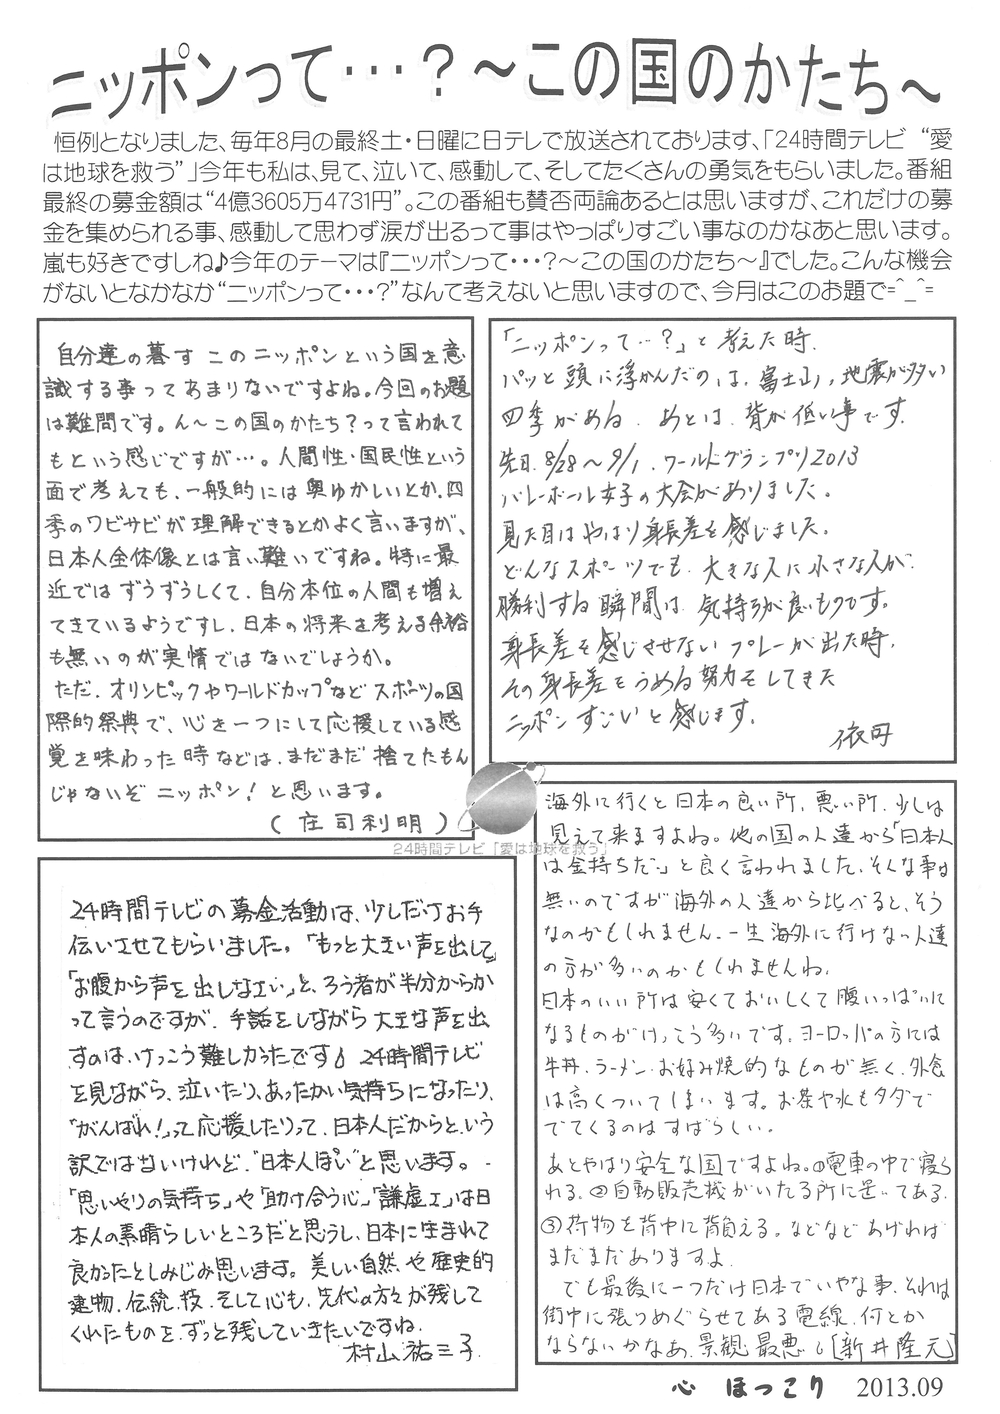 ニッポンって・・・?～この国のかたち～
恒例となりました、毎年8月の最終土・日曜に日テレで放送されております、「24時間テレビ “愛
は地球を救う”」今年も私は、見て、泣いて、感動して、そしてたくさんの勇気をもらいました。番組
最終の募金額は“4億3605万4731円”。この番組も賛否両論あるとは思いますが、これだけの募
金を集められる事、感動して思わず涙が出るって事はやっぱりすごい事なのかなあと思います。
嵐も好きですしね♪今年のテーマは『ニッポンって・・・?～この国のかたち～』でした。こんな機会
がないとなかなか“ニッポンって・・・?”なんて考えないと思いますので、今月はこのお題で=^_^=
自分達の暮す このニッポンという国を意
識する事ってあまりないですよね。今回のお題
は難問です。ん～この国のかたち?って言われて
もという感じですが…。人間性・国民性という
面で考えても、一般的には奥ゆかしいとか、四
季のワビサビが理解できるとかよく言いますが、
日本人全体像とは言い難いですね。特に最
近では ずうずうしくて、自分本位の人間も増え
てきているようですし、日本の将来を考える余裕
も無いのが実情ではないでしょうか。
ただ、オリンピックやワールドカップなどスポーツの国
際的祭典で、心を一つにして応援している感
覚を味わった時などは、まだまだ捨てたもん
じゃないぞ ニッポン! と思います。
(庄司利明)
「ニッポンって…?」と考えた時、
パッと頭に浮かんだのは、富士山、地震が多い
四季がある あとは、背が低い事です。
先日、8/28～9/1、ワールドグランプリ2013
バレーボール女子の大会がありました。
見た目はやはり身長差を感じました。
どんなスポーツでも、大きな人に小さな人が、
勝利する瞬間は、気持ちが良いものです。
身長差を感じさせない プレーが出た時、
その身長差をうめる努力をしてきた
ニッポンすごいと感じます。
依田
24時間テレビ「愛は地球を救う」
24時間テレビの募金活動は、少しだけお手
伝いさせてもらいました。「もっと大きい声を出して」
「お腹から声を出しなさい」と、ろう者が半分からか
って言うのですが、手話をしながら大きな声を出
すのは、けっこう難しかったです♪ 24時間テレビ
を見ながら、泣いたり、あったかい気持ちになったり、
「がんばれ!」って応援したりって、日本人だからという
訳ではないけれど、“日本人ぽい”と思います。
「思いやりの気持ち」や「助け合う心」「謙虚さ」は日
本人の素晴らしいところだと思うし、日本に生まれて
良かったとしみじみ思います。美しい自然や歴史的
建物、伝統、技、そして心も、先代の方々が残して
くれたものを、ずっと残していきたいですね。
村山祐三子
海外に行くと日本の良い所、悪い所、少しは
見えて来ますよね。他の国の人達から「日本人
は金持ちだ」と良く言われました、そんな事は
無いのですが海外の人達から比べると、そう
なのかもしれません、一生海外に行けない人達
の方が多いのかもしれませんね。
日本のいい所は安くておいしくて腹いっぱいに
なるものがけっこう多いです。ヨーロッパの方には
牛丼、ラーメン、お好み焼的なものが無く、外食
は高くついてしまいます。お茶や水もタダで
でてくるのはすばらしい。
あとやはり安全な国ですよね。①電車の中で寝ら
れる、②自動販売機がいたる所に置いてある、
③荷物を背中に背負える。などなどあげれば
まだまだありますよ
でも最後に一つだけ日本でいやな事、それは
街中に張りめぐらせてある電線、何とか
ならないかなぁ、景観最悪し[新井隆元]
心 ほっこり 2013.09